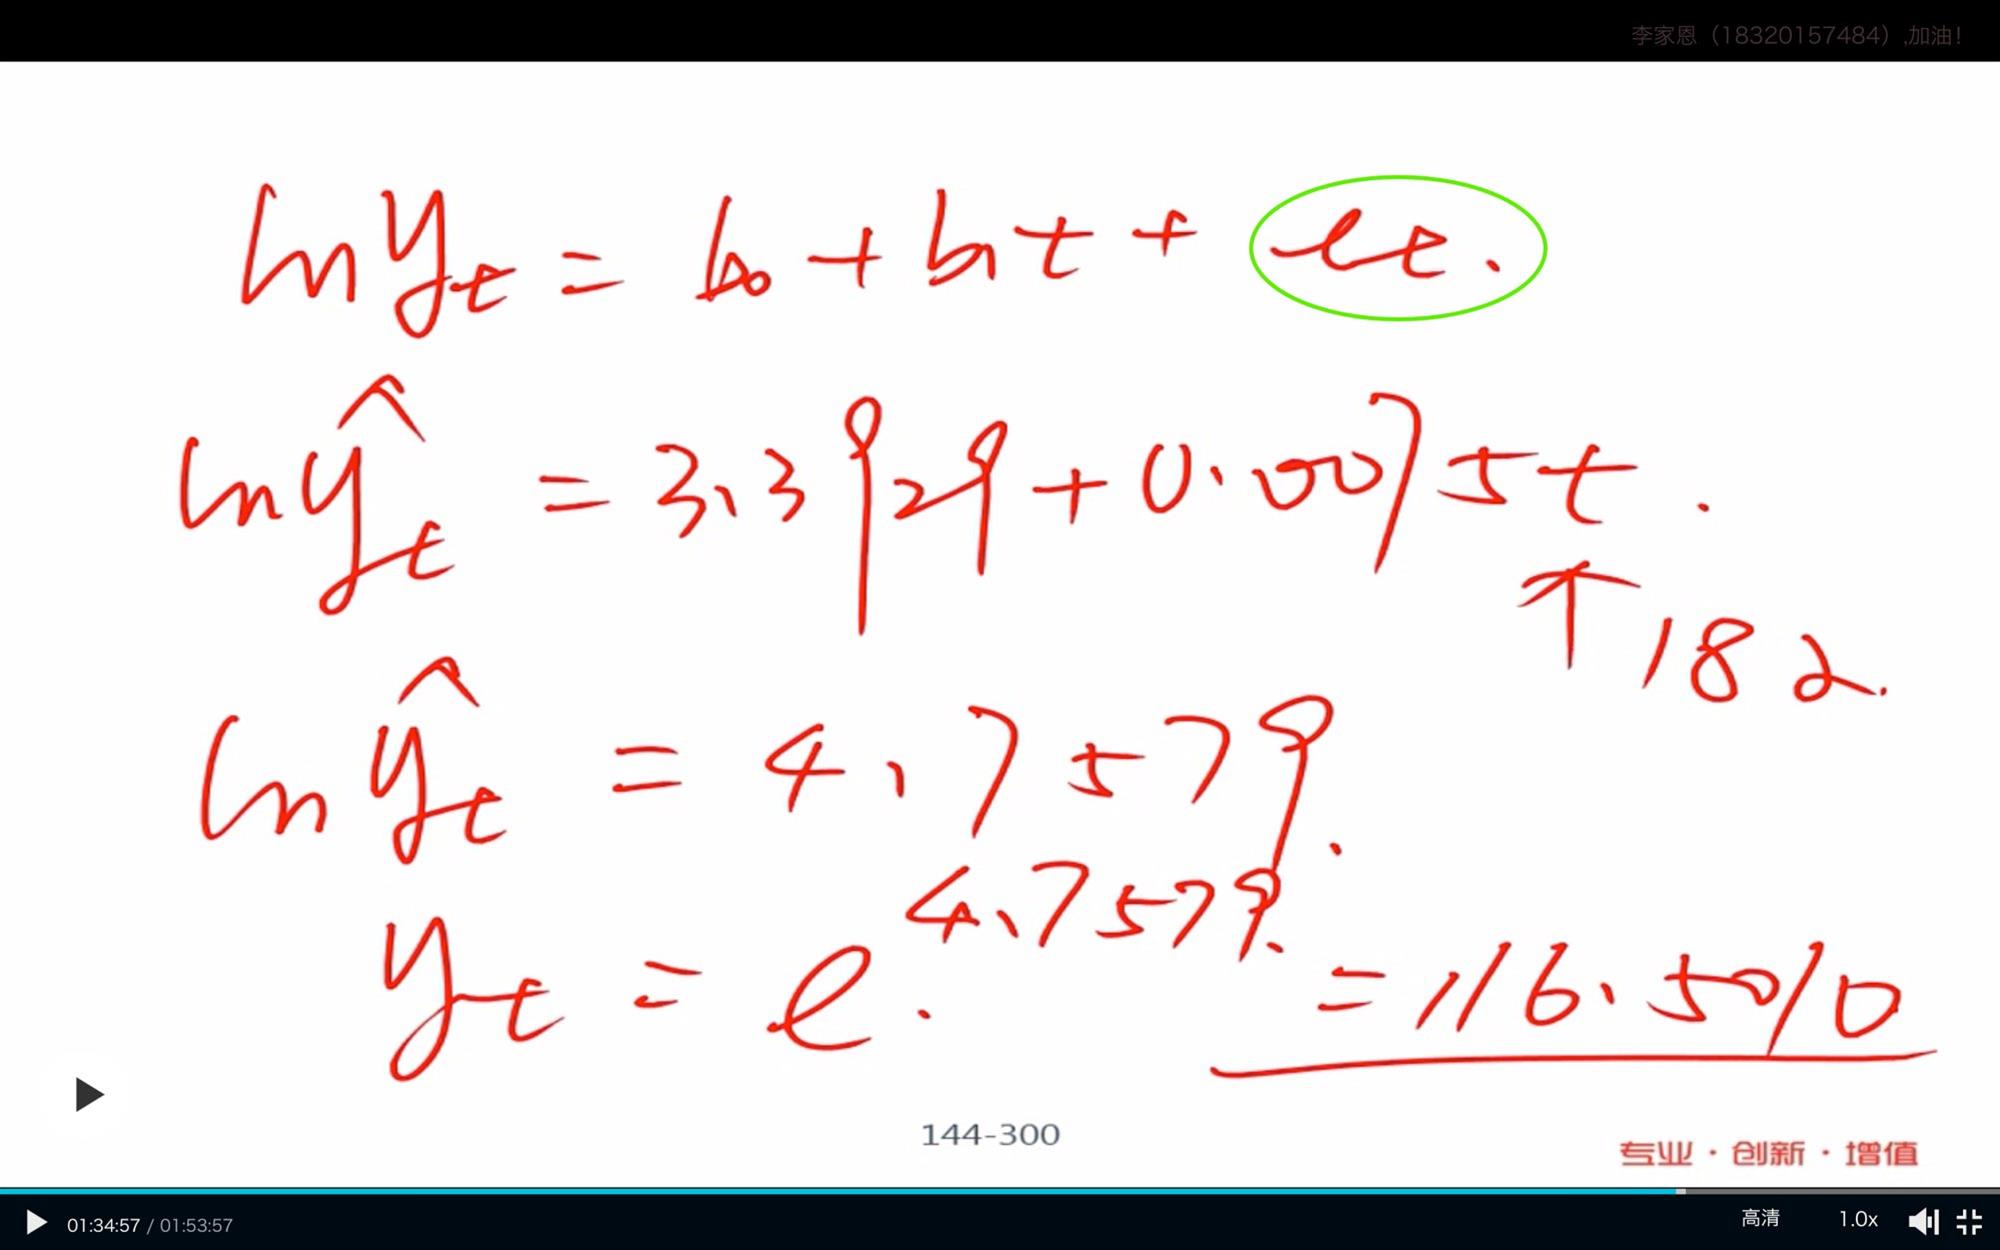 李家恩（18320157484）,加油！
ln yₜ = b₀ + b₁t + eₜ.
ln ŷₜ = 3.3929 + 0.0075t.
↑ 182.
ln ŷₜ = 4.7579.
yₜ = e^4.7579. = 116.5010
144-300
专业·创新·增值
01:34:57 / 01:53:57 高清 1.0x